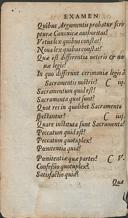 EXAMEN
Quibus Argumentis probatur scri
pturæ Canonicæ authoritas?
Vetus lex quibus constat?
Nova lex quibus constat?
Quæ est differentia veteris & no
væ legis?
In quo differunt cerimoniæ legis à
Sacramentis nostris? C
Sacramentum quid est?
Sacramenta quot sunt?
Quot res in quolibet Sacramento
spectantur? C
Quare instituta sunt Sacramenta?
Peccatum quid est?
Peccatum quotuplex?
Penitentia quid?
Penitentiæ quæ partes? C V.
Confessio quotuplex?
Satisfactio quid?
Quæ